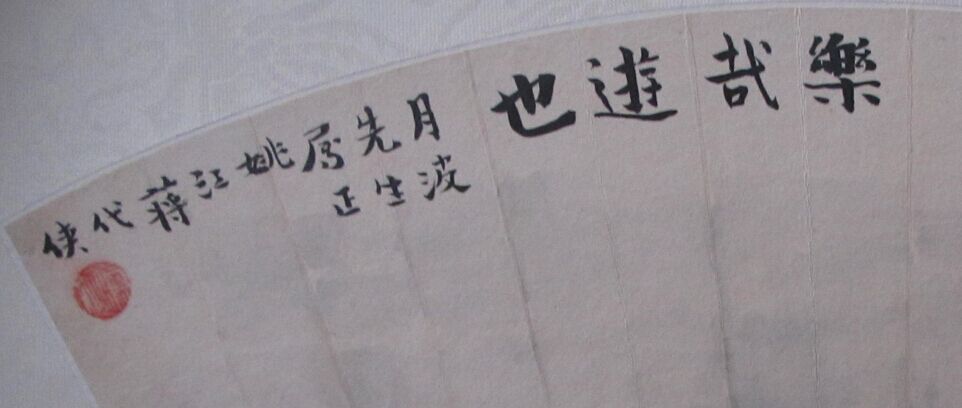 樂哉遊也
月波先生屬正
姚江蔣代俠